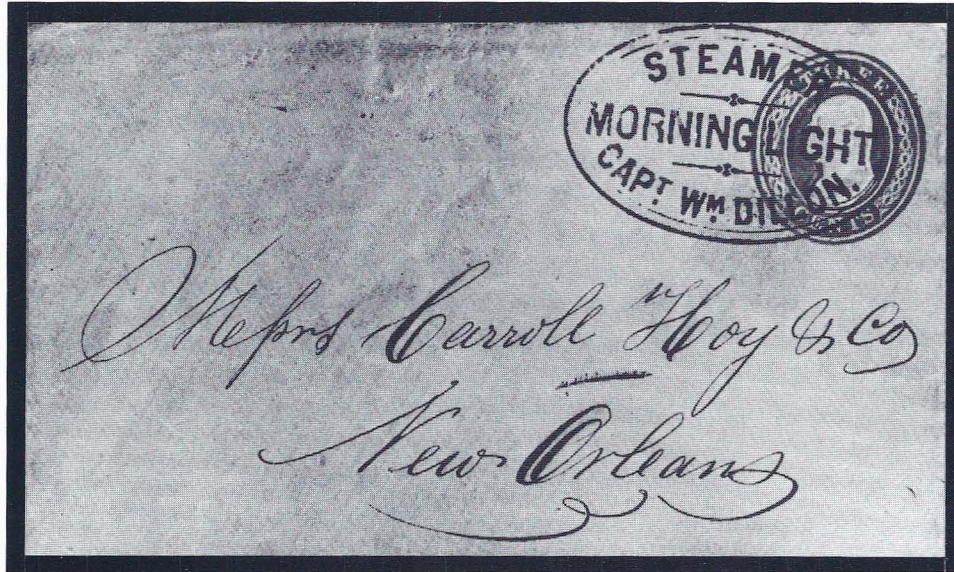 STEAMER
MORNING LIGHT
CAPT. WM. DILLON.
Messrs Carroll Hoy & Co
New Orleans